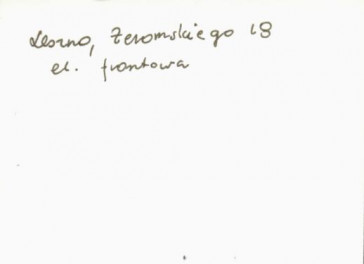 Leszno, Żeromskiego 18
el. frontowa